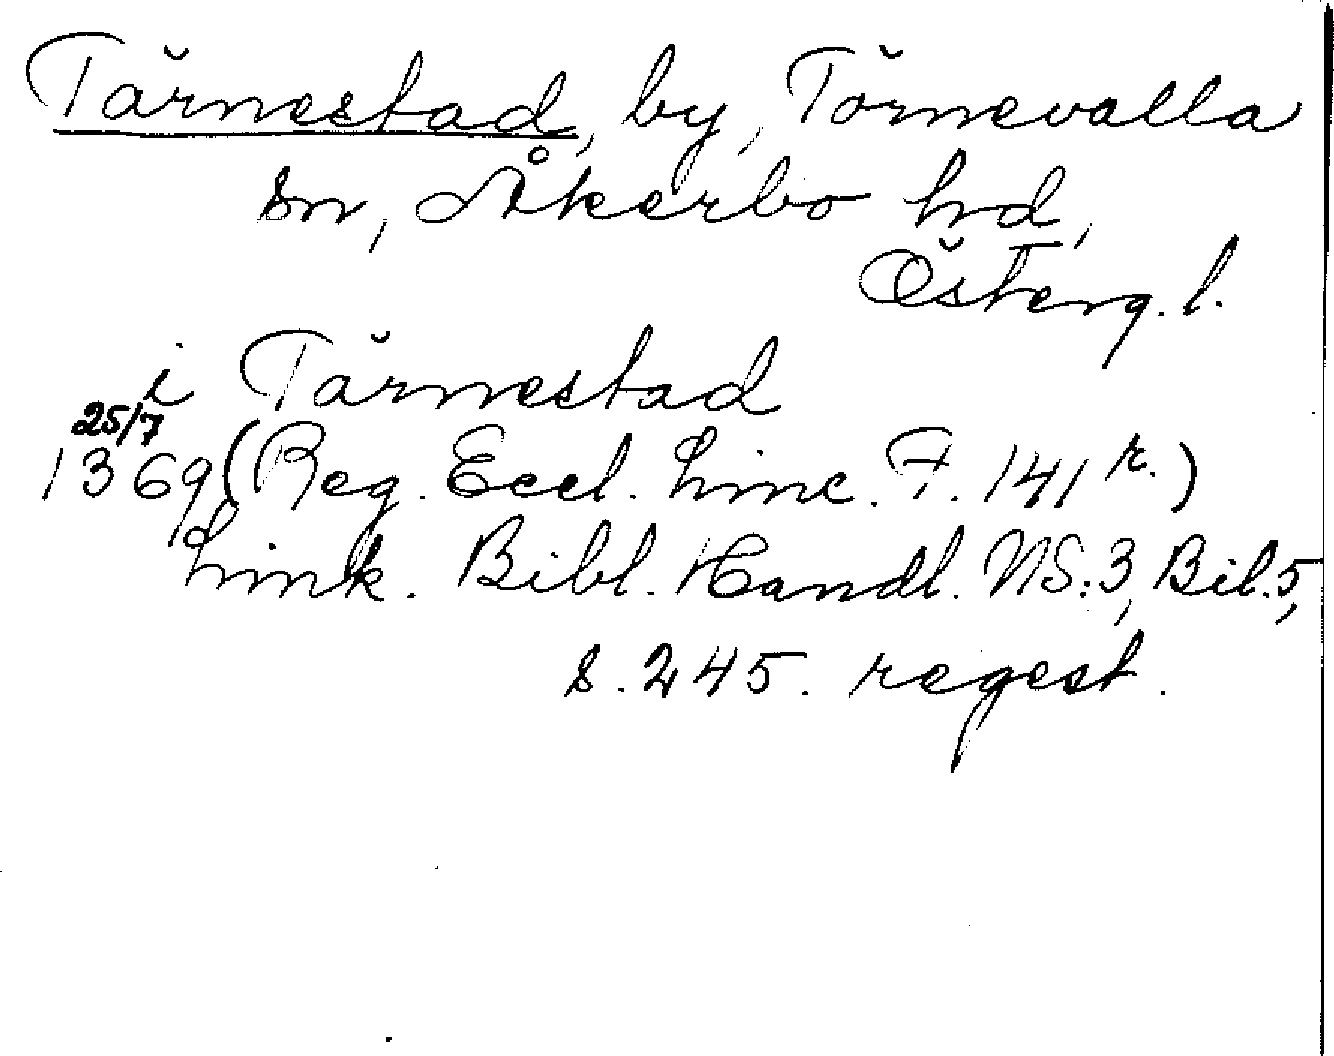 Tärnestad, by, Törnevalla
sn, Åkerbo hd,
Österg. l.
i Tärnestad
25/7
1369 (Reg. Eccl. Linc. F. 141 r.)
Link. Bibl. Handl. NS:3, Bil.5,
s. 245. regest.